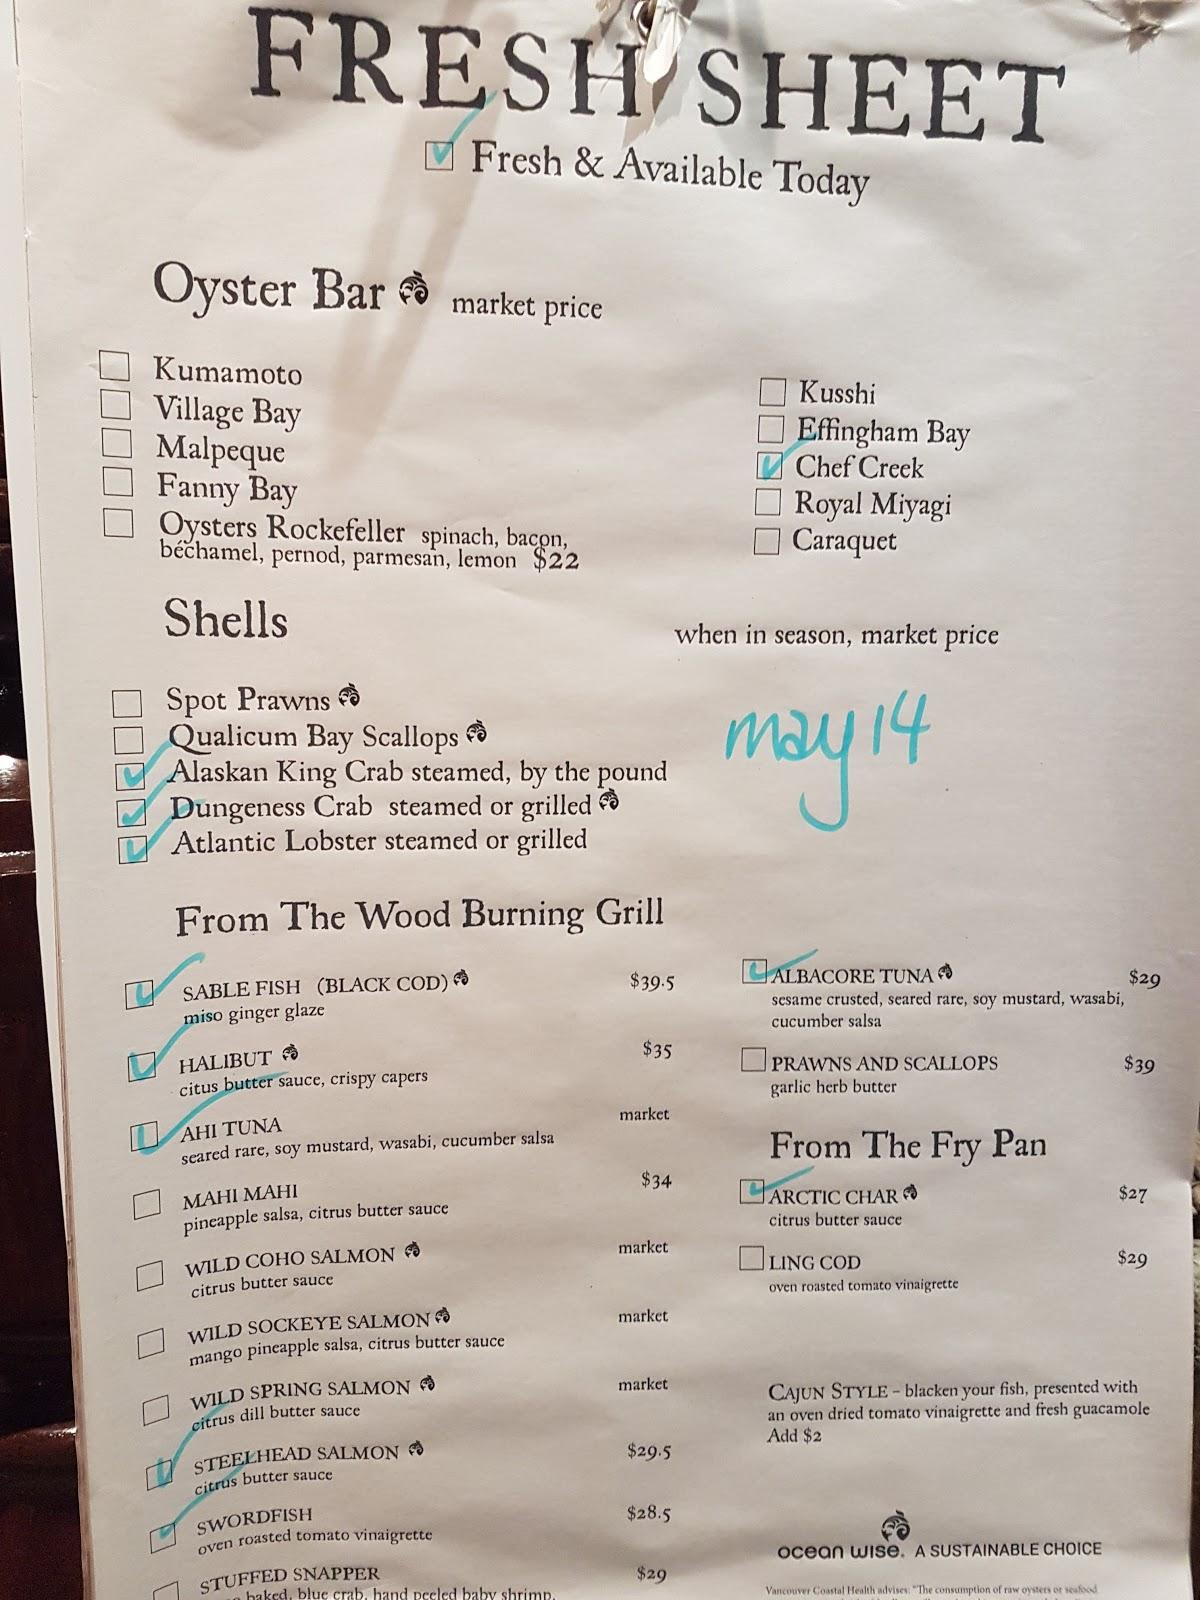 FRESH SHEET
Fresh & Available Today
Oyster Bar market price
Kumamoto
Village Bay
Malpeque
Fanny Bay
Oysters Rockefeller spinach, bacon,
béchamel, pernod, parmesan, lemon $22
Kusshi
Effingham Bay
Chef Creek
Royal Miyagi
Caraquet
Shells
when in season, market price
Spot Prawns
Qualicum Bay Scallops
Alaskan King Crab steamed, by the pound
Dungeness Crab steamed or grilled
Atlantic Lobster steamed or grilled
may 14
From The Wood Burning Grill
SABLE FISH (BLACK COD) $39.5
miso ginger glaze
HALIBUT $35
citus butter sauce, crispy capers
AHI TUNA market
seared rare, soy mustard, wasabi, cucumber salsa
MAHI MAHI $34
pineapple salsa, citrus butter sauce
WILD COHO SALMON market
citrus butter sauce
WILD SOCKEYE SALMON market
mango pineapple salsa, citrus butter sauce
WILD SPRING SALMON market
citrus dill butter sauce
STEELHEAD SALMON $29.5
citrus butter sauce
SWORDFISH $28.5
oven roasted tomato vinaigrette
STUFFED SNAPPER $29
baked, blue crab, hand peeled baby shrimp,
ALBACORE TUNA $29
sesame crusted, seared rare, soy mustard, wasabi,
cucumber salsa
PRAWNS AND SCALLOPS $39
garlic herb butter
From The Fry Pan
ARCTIC CHAR $27
citrus butter sauce
LING COD $29
oven roasted tomato vinaigrette
CAJUN STYLE – blacken your fish, presented with
an oven dried tomato vinaigrette and fresh guacamole
Add $2
ocean wise. A SUSTAINABLE CHOICE
Vancouver Coastal Health advises: "The consumption of raw oysters or seafood